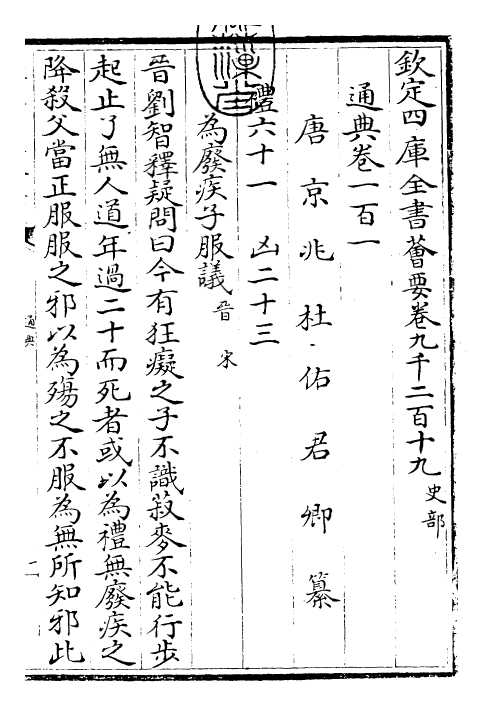 欽定四庫全書薈要卷九千二百十九 史部
通典卷一百一
唐京兆杜佑君卿纂
禮六十一 凶二十三
為廢疾子服議 晉 宋
晉劉智釋疑問曰今有狂癡之子不識菽麥不能行步
起止了無人道年過二十而死者或以為禮無廢疾之
降殺父當正服服之邪以為殤之不服為無所知邪此
通典